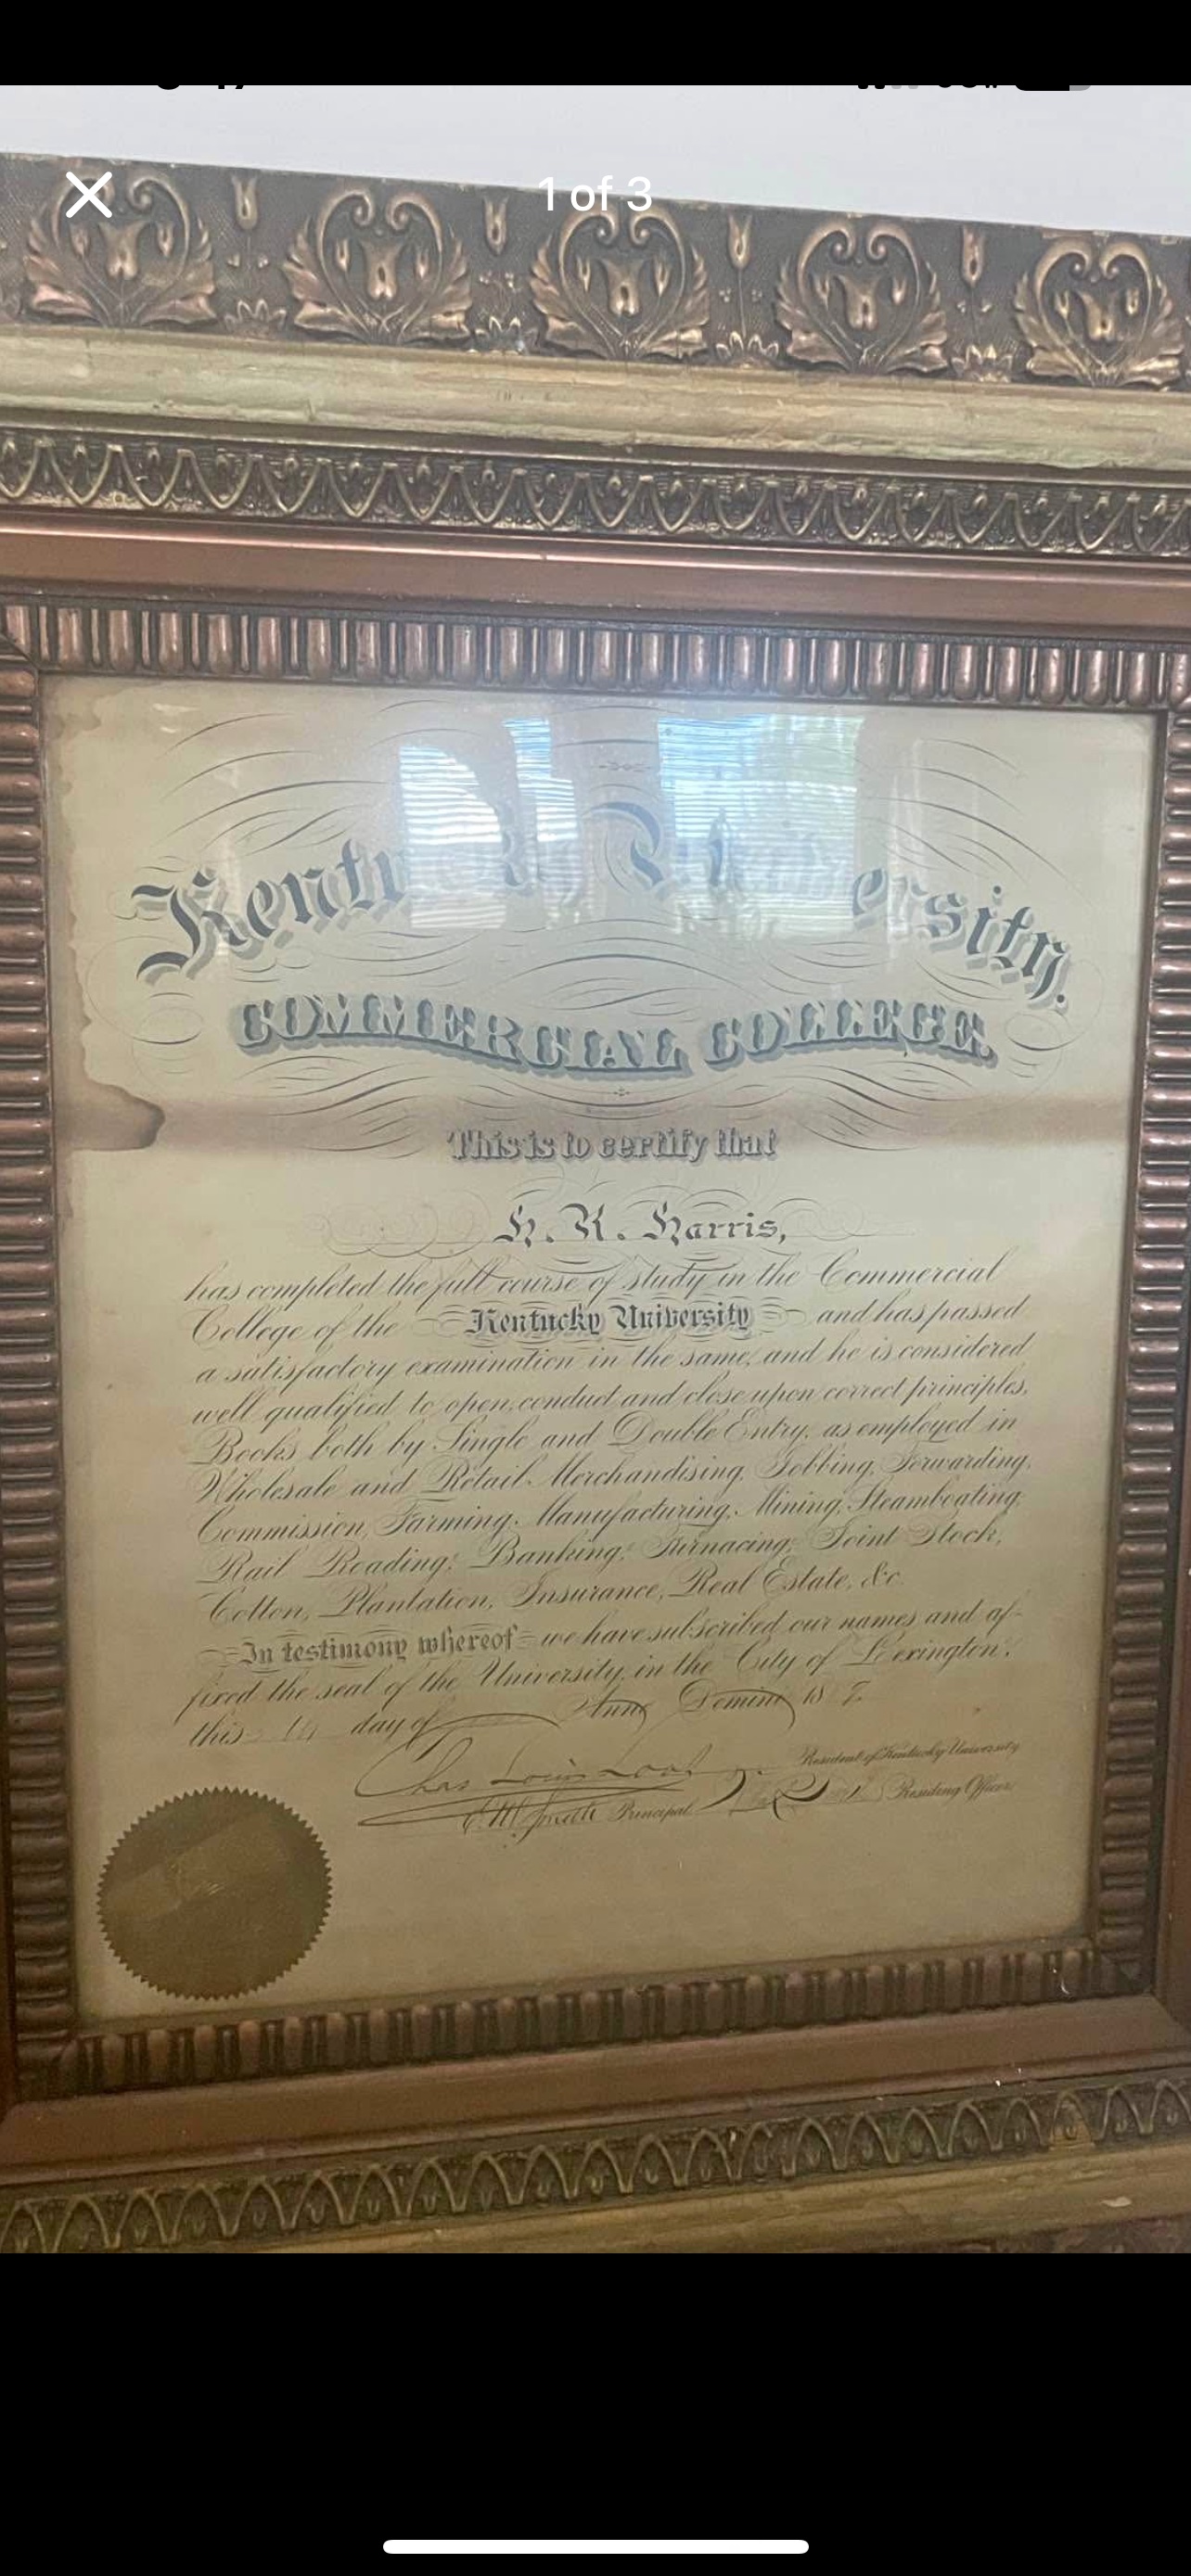 1 of 3
Kentucky University,
COMMERCIAL COLLEGE.
This is to certify that
H. R. Harris,
has completed the full course of study in the Commercial
College of the Kentucky University and has passed
a satisfactory examination in the same, and he is considered
well qualified to open, conduct and close upon correct principles,
Books both by Single and Double Entry, as employed in
Wholesale and Retail Merchandising, Jobbing, Forwarding,
Commission, Farming, Manufacturing, Mining, Steamboating,
Rail Roading, Banking, Furnacing, Joint Stock,
Cotton, Plantation, Insurance, Real Estate, &c.
In testimony whereof we have subscribed our names and af-
fixed the seal of the University, in the City of Lexington,
this day of Anno Domini 18
Chas Louis Loos President of Kentucky University
Principal Presiding Officer